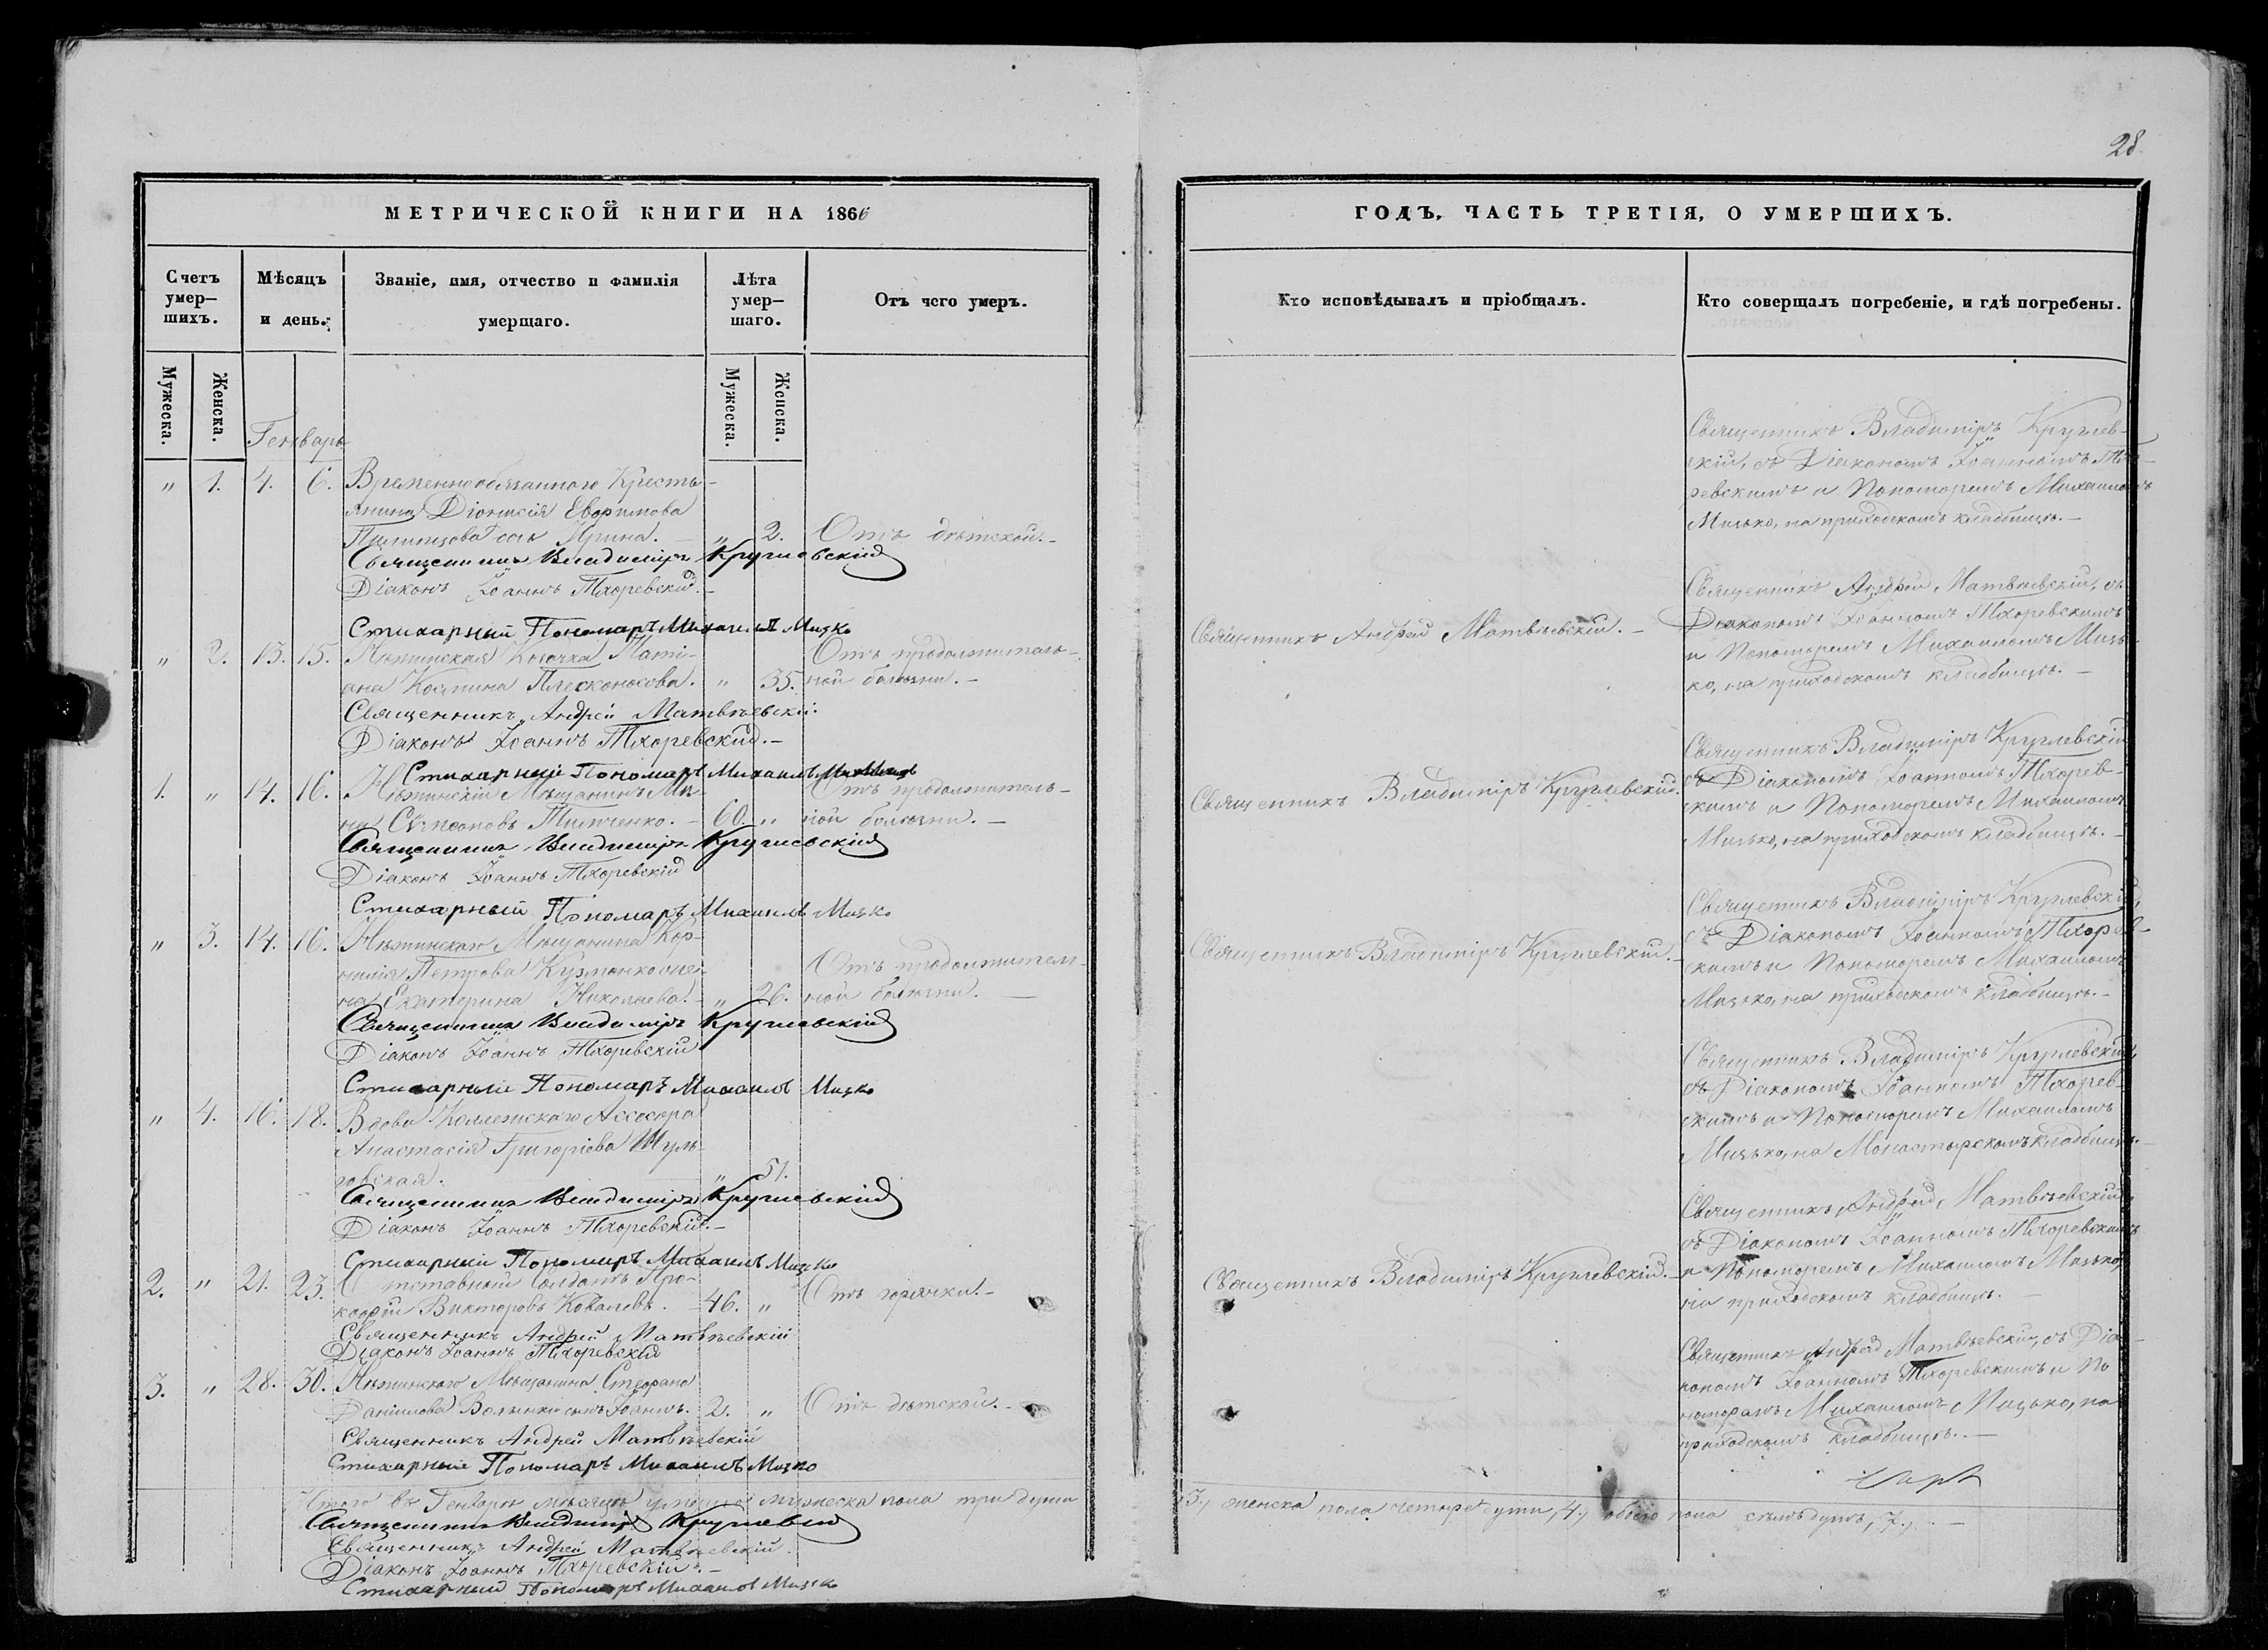 28
МЕТРИЧЕСКОЙ КНИГИ НА 1866
ГОДЪ, ЧАСТЬ ТРЕТІЯ, О УМЕРШИХЪ.
Счетъ
умер-
шихъ.
Мѣсяцъ
и день.
Званіе, имя, отчество и фамилія
умершаго.
Лѣта
умер-
шаго.
Отъ чего умеръ.
Кто исповѣдывалъ и пріобщалъ.
Кто совершалъ погребеніе, и гдѣ погребены.
Мужеска.
Женска.
Мужеска.
Женска.
Генварь
„ 1. 4. 6. Временнообязаннаго Крестья-
нина Діонисія Евфимова
дочь Ирина. – „ 2. Отъ дѣтской. –
Священникъ Владиміръ Круглевскій
Діаконъ Іоаннъ Тхоревскій. –
Стихарный Пономарь Михаилъ Мизко
Священникъ Владиміръ Круглев-
скій, съ Діакономъ Іоанномъ Тхо-
ревскимъ и Пономаремъ Михаиломъ
Мизько, на приходскомъ кладбищѣ. –
„ 2. 13. 15. Нѣжинская Козачка Таті-
ана Плесконосова. „ 35.
Отъ продолжитель-
ной болѣзни. –
Священникъ Андрей Матвѣевскій.
Діаконъ Іоаннъ Тхоревскій. –
Стихарный Пономарь Михаилъ
Священникъ Андрей Матвѣевскій. –
Священникъ Андрей Матвѣевскій, съ
Діакономъ Іоанномъ Тхоревскимъ
и Пономаремъ Михаиломъ Мизь-
ко, на приходскомъ кладбищѣ. –
1. „ 14. 16. Нѣжинскій Мѣщанинъ Ми-
на Тимченко. – 60. „
Отъ продолжитель-
ной болѣзни. –
Священникъ Владиміръ Круглевскій
Діаконъ Іоаннъ Тхоревскій
Стихарный Пономарь Михаилъ Мизко
Священникъ Владиміръ Круглевскій.
Священникъ Владиміръ Круглевскій
съ Діакономъ Іоанномъ Тхорев-
скимъ и Пономаремъ Михаиломъ
Мизько, на приходскомъ кладбищѣ. –
„ 3. 14. 16. Нѣжинскаго Мѣщанина Кор-
нилія Петрова Кузменко же-
на Екатерина Николаева. – „ 26.
Отъ продолжитель-
ной болѣзни. –
Священникъ Владиміръ Круглевскій
Діаконъ Іоаннъ Тхоревскій
Стихарный Пономарь Михаилъ Мизко
Священникъ Владиміръ Круглевскій. –
Священникъ Владиміръ Круглевскій,
съ Діакономъ Іоанномъ Тхорев-
скимъ и Пономаремъ Михаиломъ
Мизько, на приходскомъ кладбищѣ. –
„ 4. 16. 18. Вдова Коллежскаго Ассесора
Анастасія Григоріева Шуль-
говская. „ 51.
Священникъ Владиміръ Круглевскій
Діаконъ Іоаннъ Тхоревскій. –
Стихарный Пономарь Михаилъ Мизко
Священникъ Владиміръ Круглевскій,
съ Діакономъ Іоанномъ Тхорев-
скимъ и Пономаремъ Михаиломъ
Мизько, на Монастырскомъ кладбищѣ. –
2. „ 21. 23. Отставный Солдатъ Про-
кофій Викторовъ Ковалевъ. – 46. „ Отъ горячки. –
Священникъ Андрей Матвѣевскій
Діаконъ Іоаннъ Тхоревскій
Священникъ Владиміръ Круглевскій. –
Священникъ Андрей Матвѣевскій,
съ Діакономъ Іоанномъ Тхоревскимъ
и Пономаремъ Михаиломъ Мизько,
на приходскомъ кладбищѣ. –
3. „ 28. 30. Нѣжинскаго Мѣщанина Стефана
Даніилова сынъ Іоаннъ. 2. „ Отъ дѣтской. –
Священникъ Андрей Матвѣевскій
Стихарный Пономарь Михаилъ Мизко
Священникъ Андрей Матвѣевскій, съ Діа-
кономъ Іоанномъ Тхоревскимъ и По-
номаремъ Михаиломъ Мизько, на
приходскомъ кладбищѣ. –
Итого въ Генварѣ мѣсяцѣ умерло мужеска пола три души
,3., женска пола четыре души, ,4., обоего пола семь душъ, ,7., –
Священникъ Владиміръ Круглевскій
Священникъ Андрей Матвѣевскій.
Діаконъ Іоаннъ Тхоревскій. –
Стихарный Пономарь Михаилъ Мизко